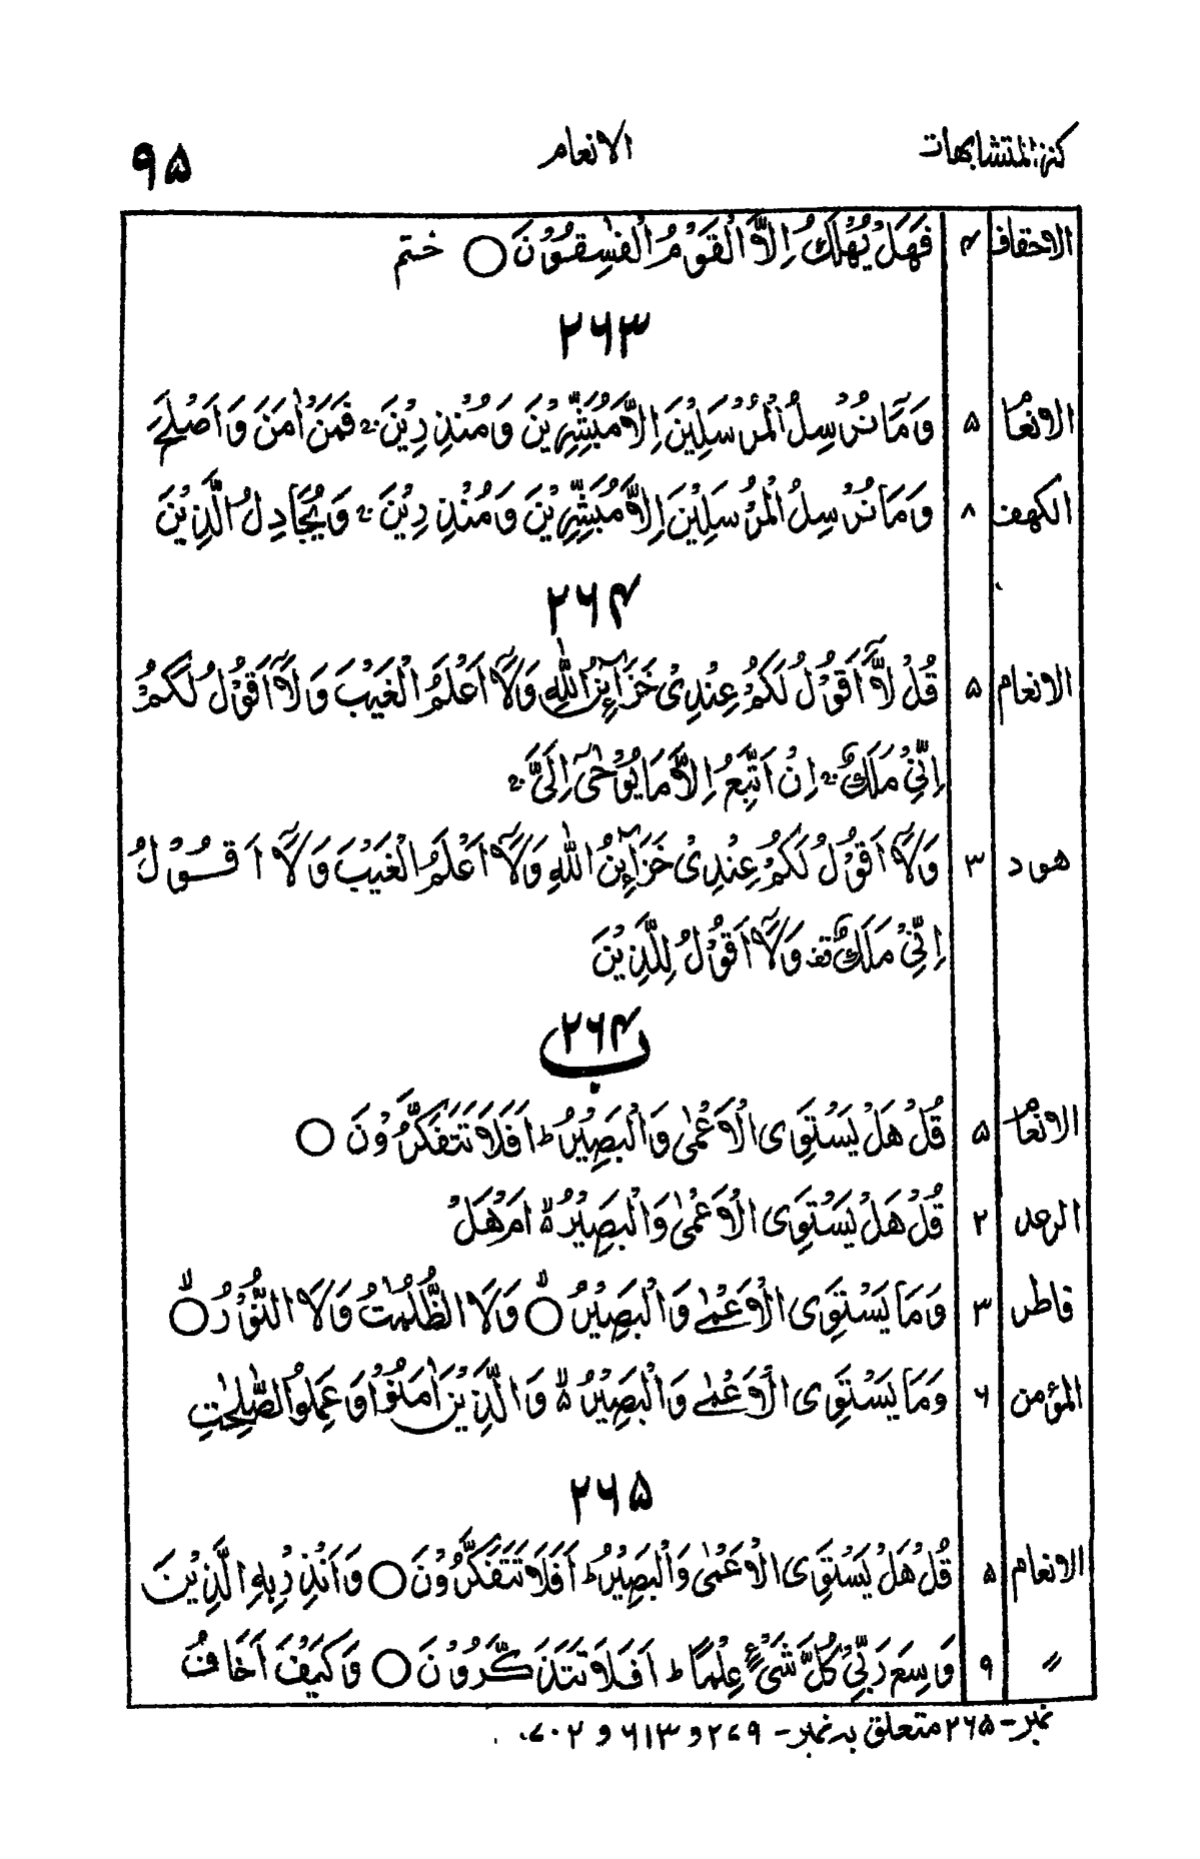 كنز المتشابهات الانعام ٩۵
الاحقاف ۴ فَهَلْ يُهْلَكُ اِلَّا الْقَوْمُ الْفٰسِقُوْنَ ○ ختم
٢٦٣
الانعام ۵ وَمَا نُرْسِلُ الْمُرْسَلِيْنَ اِلَّا مُبَشِّرِيْنَ وَمُنْذِرِيْنَ ۚ فَمَنْ اٰمَنَ وَاَصْلَحَ
الكهف ٨ وَمَا نُرْسِلُ الْمُرْسَلِيْنَ اِلَّا مُبَشِّرِيْنَ وَمُنْذِرِيْنَ ۚ وَيُجَادِلُ الَّذِيْنَ
٢٦۴
الانعام ۵ قُلْ لَّآ اَقُوْلُ لَكُمْ عِنْدِىْ خَزَآئِنُ اللّٰهِ وَلَآ اَعْلَمُ الْغَيْبَ وَلَآ اَقُوْلُ لَكُمْ
اِنِّىْ مَلَكٌ ۚ اِنْ اَتَّبِعُ اِلَّا مَا يُوْحٰىٓ اِلَىَّ ۚ
هود ٣ وَلَآ اَقُوْلُ لَكُمْ عِنْدِىْ خَزَآئِنُ اللّٰهِ وَلَآ اَعْلَمُ الْغَيْبَ وَلَآ اَقُوْلُ
اِنِّىْ مَلَكٌ قف وَلَآ اَقُوْلُ لِلَّذِيْنَ
٢٦۴ ب
الانعام ۵ قُلْ هَلْ يَسْتَوِى الْاَعْمٰى وَالْبَصِيْرُ ؕ اَفَلَا تَتَفَكَّرُوْنَ ○
الرعد ٢ قُلْ هَلْ يَسْتَوِى الْاَعْمٰى وَالْبَصِيْرُ ۙ اَمْ هَلْ
فاطر ٣ وَمَا يَسْتَوِى الْاَعْمٰى وَالْبَصِيْرُ ○ۙ وَلَا الظُّلُمٰتُ وَلَا النُّوْرُ ○ۙ
المؤمن ٦ وَمَا يَسْتَوِى الْاَعْمٰى وَالْبَصِيْرُ ۙ وَالَّذِيْنَ اٰمَنُوْا وَعَمِلُوا الصّٰلِحٰتِ
٢٦۵
الانعام ۵ قُلْ هَلْ يَسْتَوِى الْاَعْمٰى وَالْبَصِيْرُ ؕ اَفَلَا تَتَفَكَّرُوْنَ ○ وَاَنْذِرْ بِهِ الَّذِيْنَ
〃 ٩ وَسِعَ رَبِّىْ كُلَّ شَىْءٍ عِلْمًا ؕ اَفَلَا تَتَذَكَّرُوْنَ ○ وَكَيْفَ اَخَافُ
نمبر - ٢٦۵ متعلق بہ نمبر - ٢٧٩ و ٦١٣ و ٧٠٢.